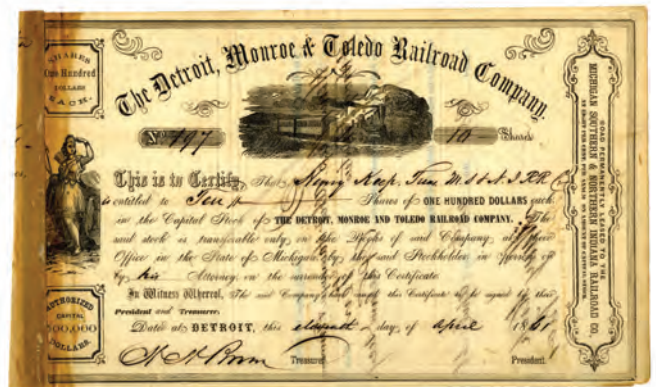 The Detroit, Monroe & Toledo Railroad Company.
SHARES
One Hundred
DOLLARS
EACH.
No 197
10 Shares
This is to Certify, That Henry Keep, Treas M.S & N.I.R.R. Co
is entitled to Ten Shares of ONE HUNDRED DOLLARS each
in the Capital Stock of THE DETROIT, MONROE AND TOLEDO RAILROAD COMPANY. The
said stock is transferable only on the Books of said Company, at their
Office in the State of Michigan, by the said Stockholder in person or
by his Attorney on the surrender of this Certificate
In Witness Whereof, The said Company have caused this Certificate to be signed by their
President and Treasurer.
Dated at DETROIT, this eleventh day of April 1861
Treasurer
President
AUTHORIZED
CAPITAL
00,000
DOLLARS.
ROAD PERMANENTLY LEASED TO THE
MICHIGAN SOUTHERN & NORTHERN INDIANA RAILROAD CO.
AT EIGHT PER CENT. PER ANNUM ON AMOUNT OF CAPITAL STOCK.